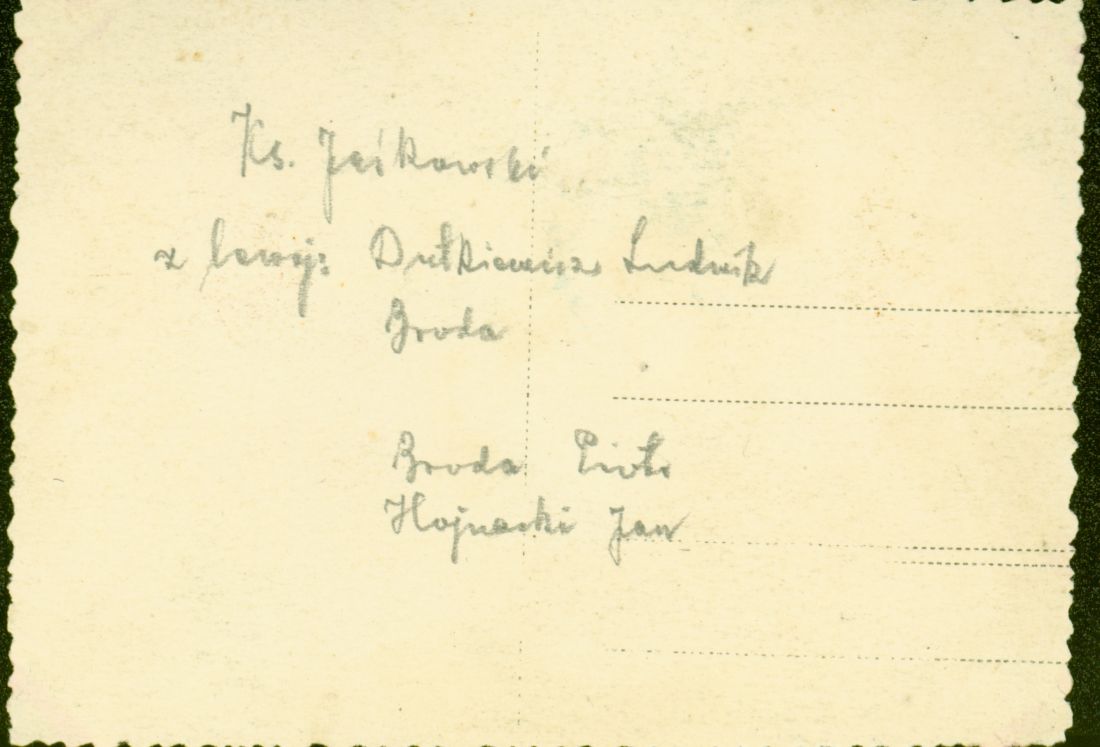 Ks. Jaśkowski
z lewej: Dutkiewicz Ludwik
Broda
Broda Piotr
Hojnacki Jan